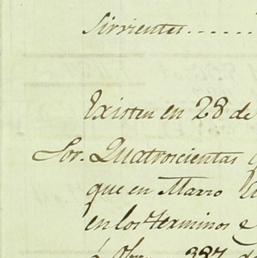 Sirvientes.....
Existen en 28 de
Sor. Quatrocientas
que en Marzo
en los terminos e
387